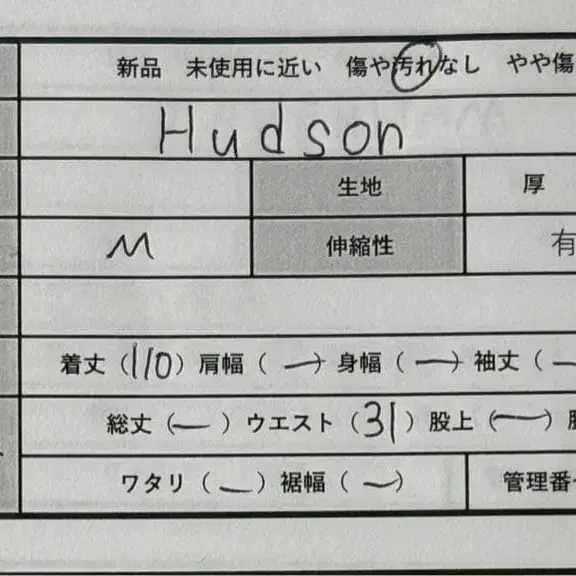 新品 未使用に近い 傷や汚れなし やや傷
Hudson
生地 厚
M 伸縮性 有
着丈（110）肩幅（ー）身幅（ー）袖丈（ー
総丈（ー）ウエスト（31）股上（ー）
ワタリ（ー）裾幅（ー） 管理番